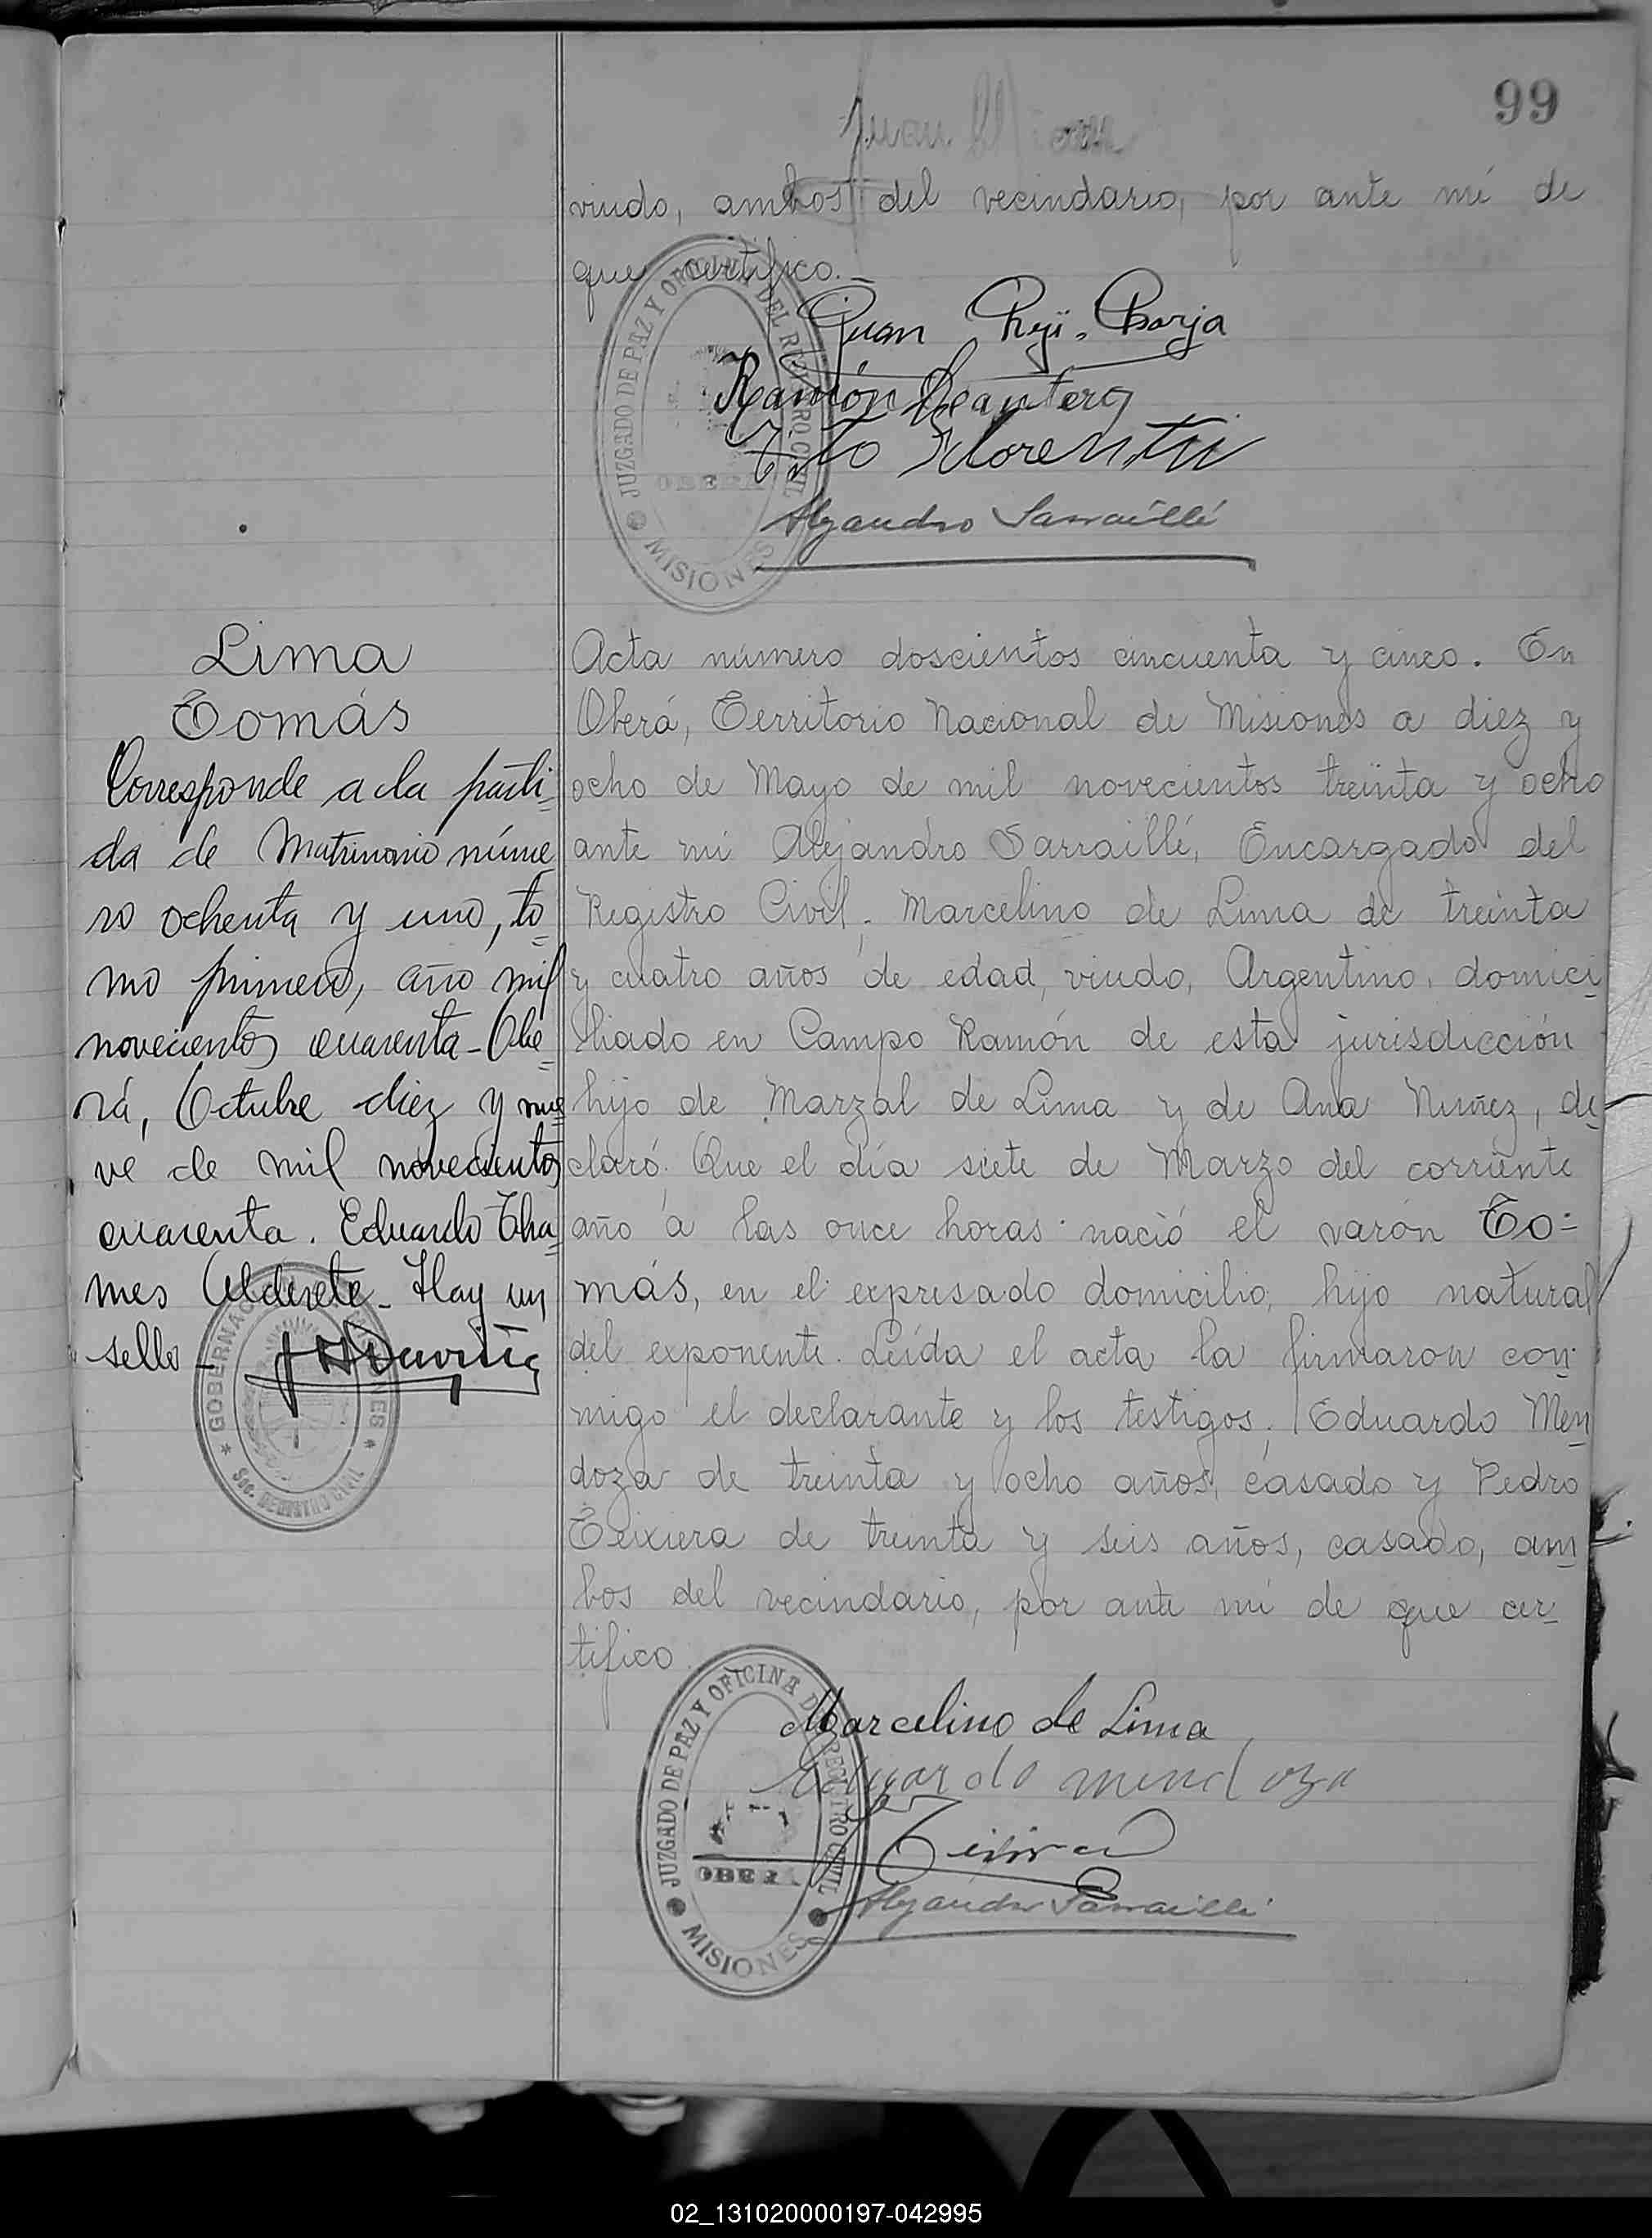 99
Juan
viudo, ambos del vecindario, por ante mí de
que certifico.-
JUZGADO DE PAZ Y OFICINA DEL REGISTRO CIVIL
OBERA
MISIONES
Juan Borja
Ramón
Tito Florentin
Alejandro Sarraillé
Lima
Tomás
Corresponde a la parti=
da de Matrimonio núme
ro ochenta y uno, to=
mo primero, año mil
novecientos cuarenta - Obe=
rá, Octubre diez y nue=
ve de mil novecientos
cuarenta. Eduardo Tha=
mes Alderete - Hay un
sello -
GOBERNACION MISIONES
Sec. REGISTRO CIVIL
Acta número doscientos cincuenta y cinco. En
Oberá, Territorio Nacional de Misiones a diez y
ocho de Mayo de mil novecientos treinta y ocho
ante mi Alejandro Sarraillé, Encargado del
Registro Civil, Marcelino de Lima de treinta
y cuatro años de edad, viudo, Argentino, domici
liado en Campo Ramón de esta jurisdicción
hijo de Marzal de Lima y de Ana Nuñez, de
claró. Que el día siete de Marzo del corriente
año a las once horas nació el varón To=
más, en el expresado domicilio, hijo natural
del exponente. Leída el acta la firmaron con
migo el declarante y los testigos. Eduardo Men
doza de treinta y ocho años, casado y Pedro
Teixiera de treinta y seis años, casado, am
bos del vecindario, por ante mi de que cer
tifico
JUZGADO DE PAZ Y OFICINA DEL REGISTRO CIVIL
OBERA
MISIONES
Marcelino de Lima
Eduardo mendoza
Alejandro Sarraillé
02_131020000197-042995